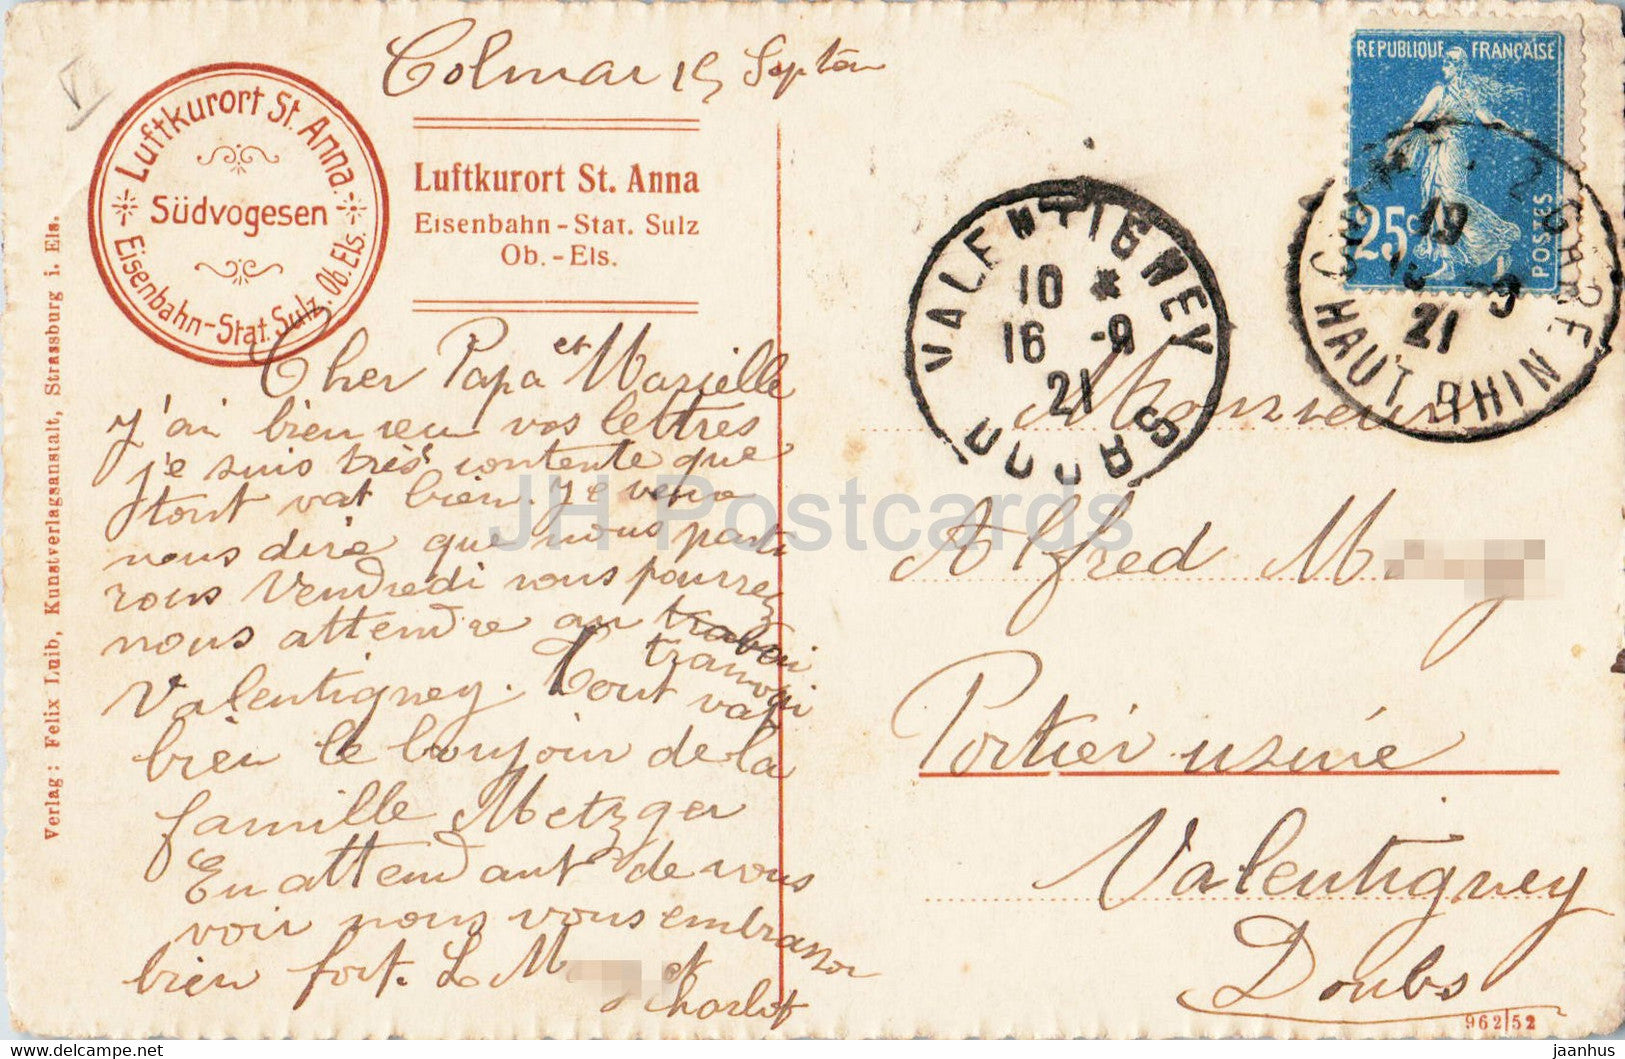 Colmar 15 Septem
Luftkurort St. Anna.
Südvogesen
Eisenbahn-Stat. Sulz, Ob. Els.
Luftkurort St. Anna
Eisenbahn-Stat. Sulz
Ob.-Els.
Verlag: Felix Luib, Kunstverlagsanstalt, Strassburg i. Els.
Cher Papa et Marielle
J'ai bien reu vos lettres
je suis très contente que
tout vat bien. Je veux
vous dire que nous parti
rons Vendredi vous pourrez
nous attendre au
tramvai
Valentigney. Tout vat
bien le boujour de la
famille Metzger
En attendant de vous
voir nous vous embrasson
bien fort. L M et
Charlot
REPUBLIQUE FRANÇAISE
25c
POSTES
VALENTIGNEY
10 *
16 -9
21
DOUBS
GARE
19
15 -9
21
HAUT RHIN
Monsieur
Alfred M
Portier usine
Valentigney
Doubs
962/52
JH Postcards
the-collection.com
jaanhus